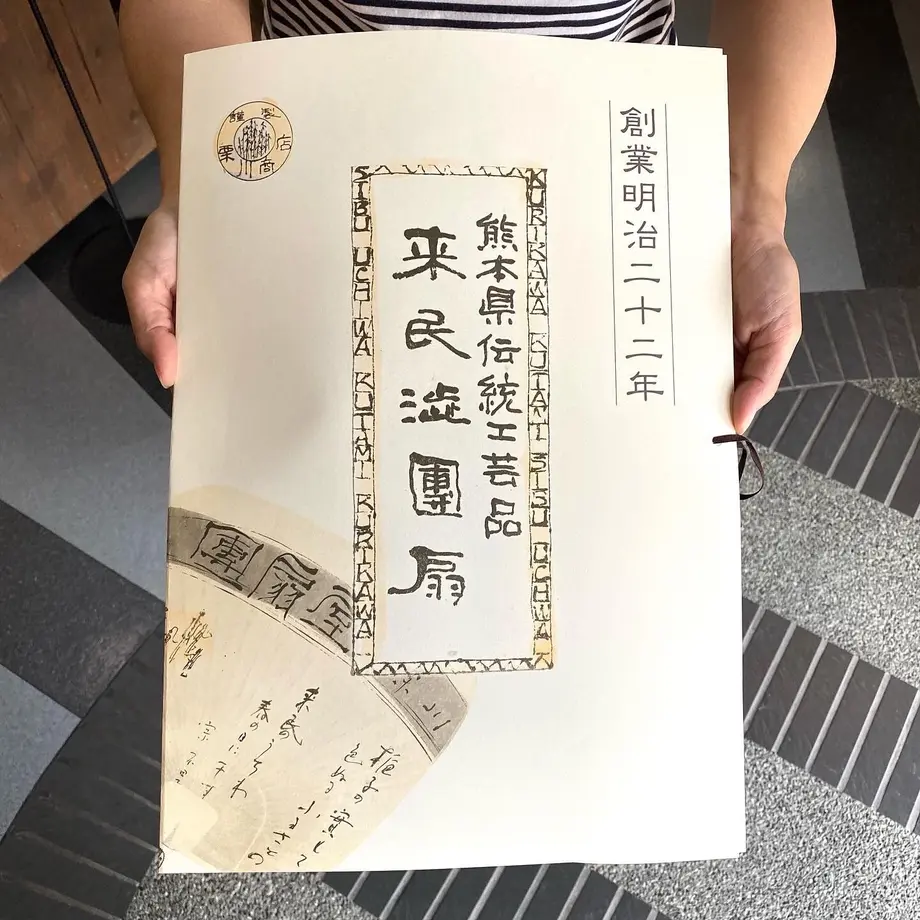 創業明治二十二年
熊本県伝統工芸品
来民渋團扇
謹製
栗川商店
KURIKAWA KUTAMI
UCHIWA
SIBU UCHIWA KUTAMI KURIKAWA
團扇
川
来民のうちわ
春の日に干す